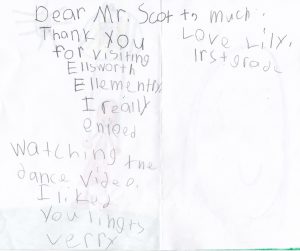 Dear Mr. Scot
Thank you
for visiting
Ellsworth
Ellementry
I really
enioed
watching the
dance video.
I liked
you lingts
verry
to much.
Love Lily,
1rst grade